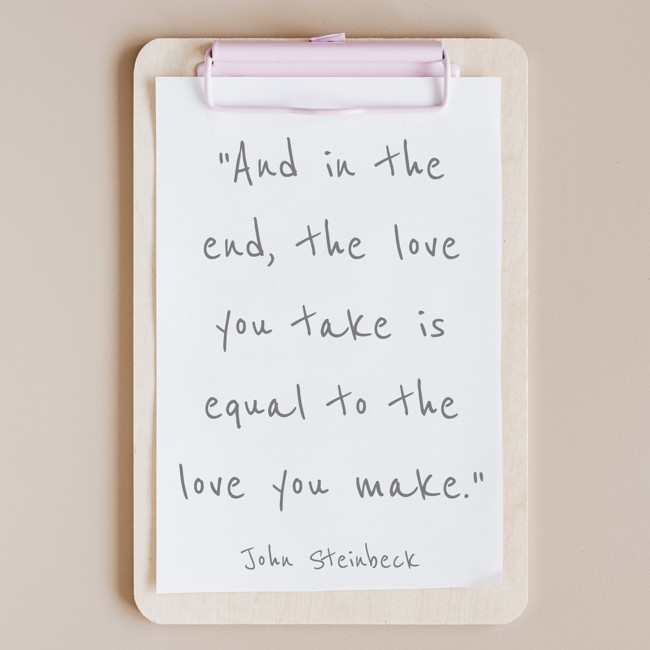 "And in the
end, the love
you take is
equal to the
love you make."
John Steinbeck